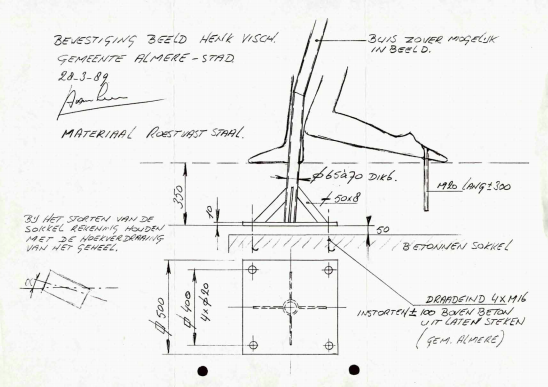 BEVESTIGING BEELD HENK VISCH.
GEMEENTE ALMERE-STAD.
28-3-89
MATERIAAL ROESTVAST STAAL.
BUIS ZOVER MOGELIJK
IN BEELD.
φ65à70 DIK6.
M20 LANG ± 300
350
50x8
50
BIJ HET STORTEN VAN DE
SOKKEL REKENING HOUDEN
MET DE HOEKVERDRAAIING
VAN HET GEHEEL.
BETONNEN SOKKEL
500
400
4xφ20
DRAADEIND 4xM16
INSTORTEN ± 100 BOVEN BETON
UIT LATEN STEKEN
(GEM. ALMERE)